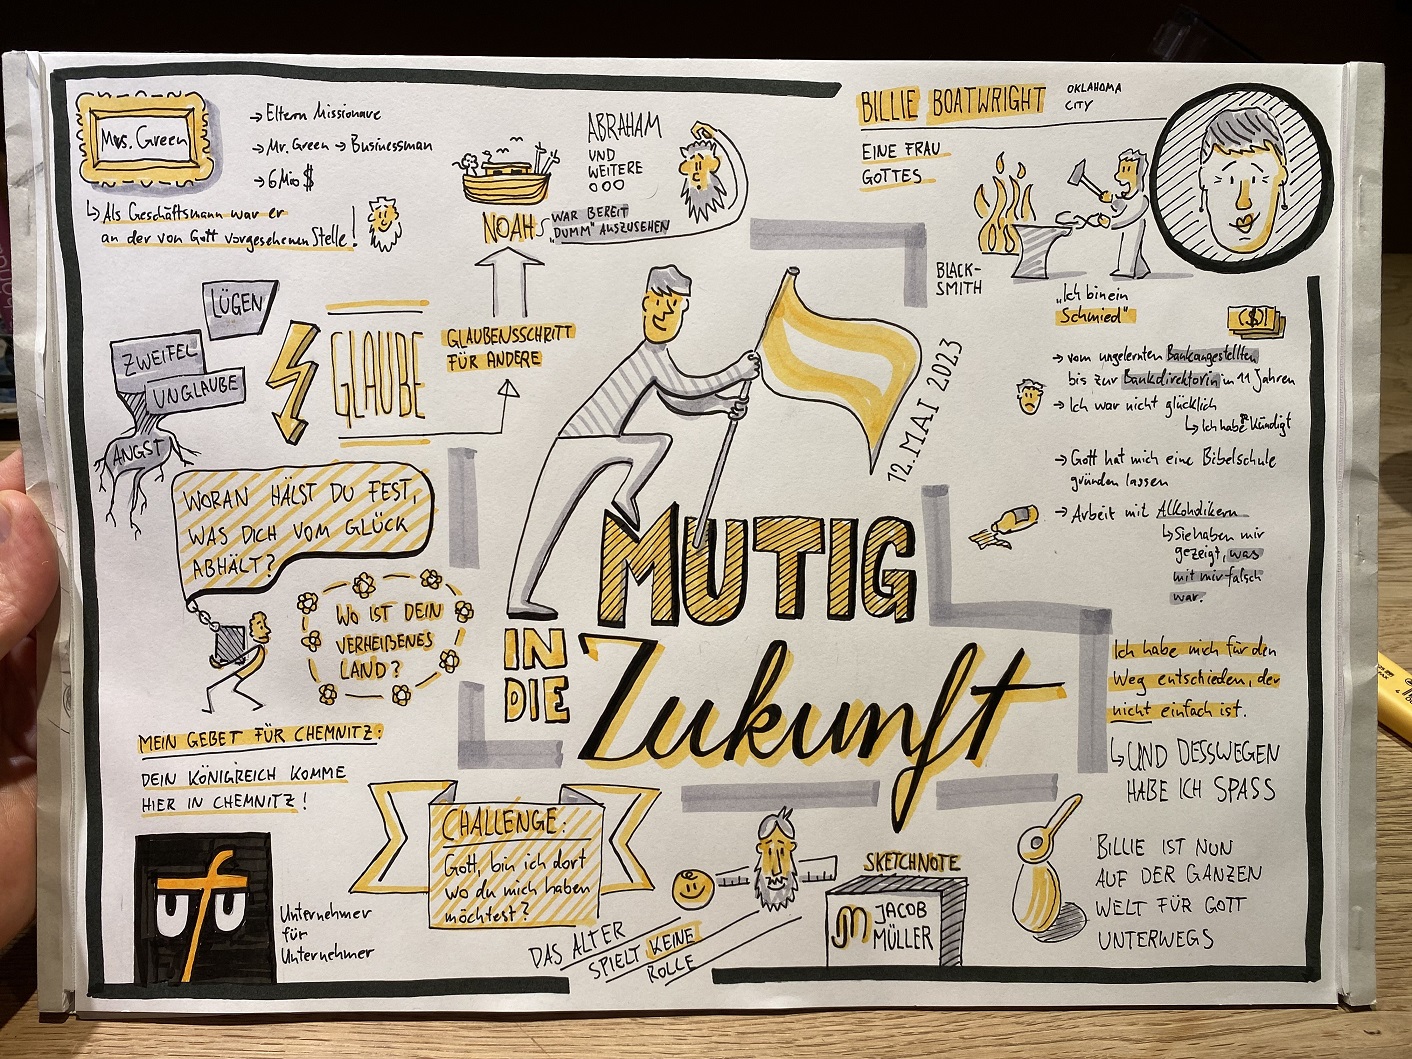 Mrs. Green
→ Eltern Missionare
→ Mr. Green → Businessman
→ 6 Mio $
↳ Als Geschäftsmann war er
an der von Gott vorgesehenen Stelle!
NOAH
ABRAHAM
UND
WEITERE
OOO
WAR BEREIT
„DUMM" AUSZUSEHEN
BILLIE BOATWRIGHT
OKLAHOMA
CITY
EINE FRAU
GOTTES
BLACK-
SMITH
„Ich bin ein
Schmied"
($)
→ vom ungelernten Bankangestellten
bis zur Bankdirektorin in 11 Jahren
→ Ich war nicht glücklich
↳ Ich habe gekündigt
→ Gott hat mich eine Bibelschule
gründen lassen
→ Arbeit mit Alkoholikern
↳ Sie haben mir
gezeigt, was
mit mir falsch
war.
Ich habe mich für den
Weg entschieden, der
nicht einfach ist.
↳ UND DESSWEGEN
HABE ICH SPASS
BILLIE IST NUN
AUF DER GANZEN
WELT FÜR GOTT
UNTERWEGS
LÜGEN
ZWEIFEL
UNGLAUBE
ANGST
GLAUBE
GLAUBENSSCHRITT
FÜR ANDERE
WORAN HÄLST DU FEST,
WAS DICH VOM GLÜCK
ABHÄLT?
WO IST DEIN
VERHEIßENES
LAND?
12. MAI 2023
MUTIG
IN
DIE
Zukunft
MEIN GEBET FÜR CHEMNITZ:
DEIN KÖNIGREICH KOMME
HIER IN CHEMNITZ!
ufu
Unternehmer
für
Unternehmer
CHALLENGE:
Gott, bin ich dort
wo du mich haben
möchtest?
DAS ALTER
SPIELT KEINE
ROLLE
SKETCHNOTE
JM
JACOB
MÜLLER